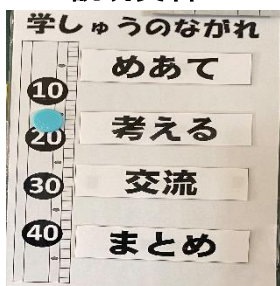 学しゅうのながれ
めあて
10
考える
20
30
交流
40
まとめ